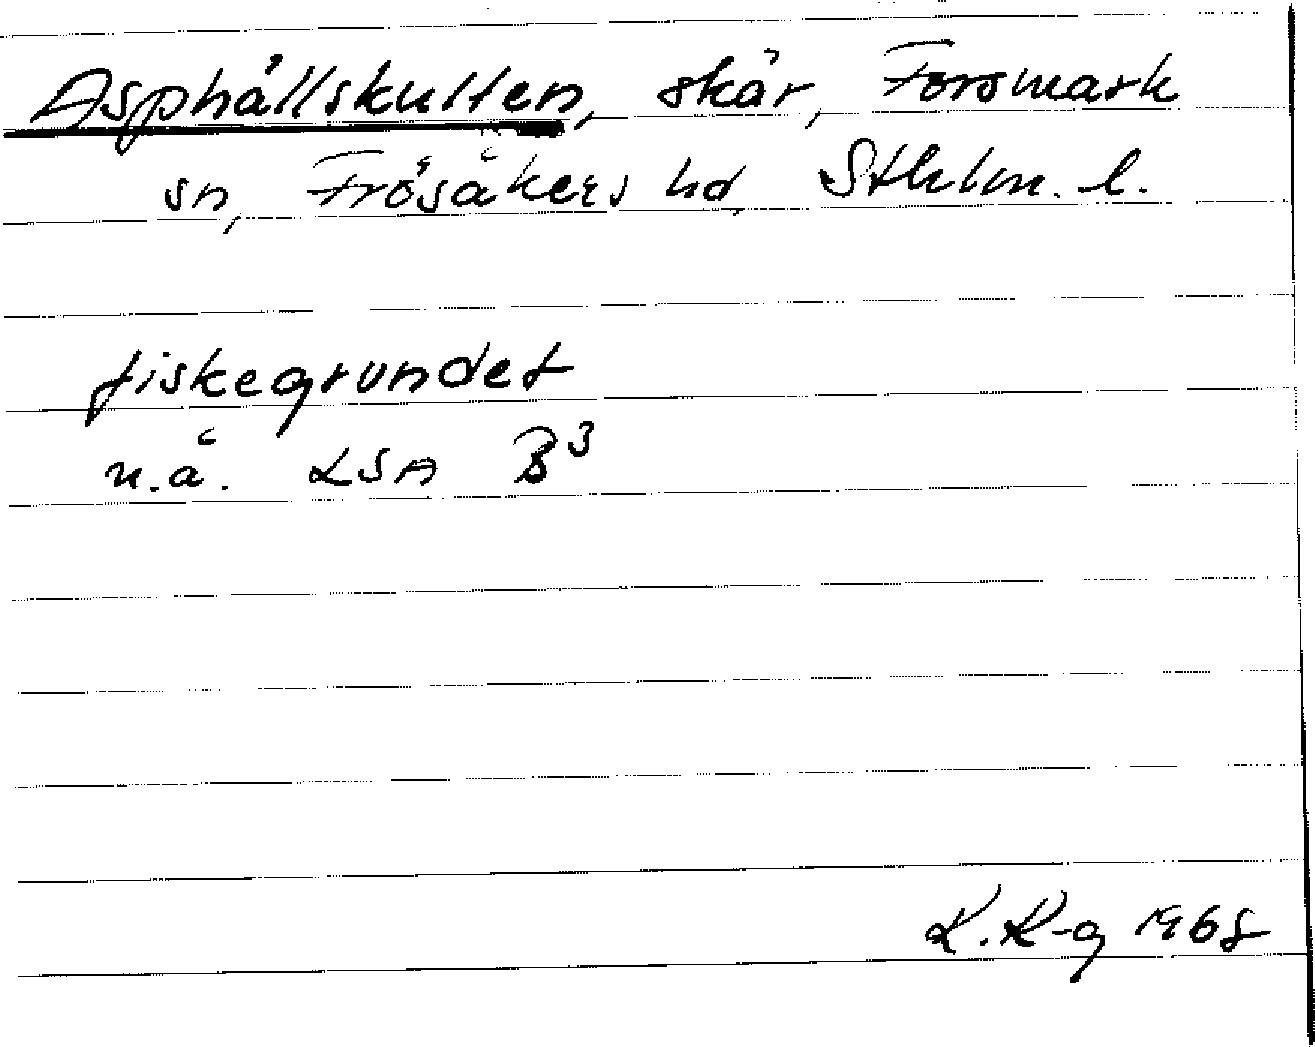 Asphällskulten, skär, Forsmark
sn, Frösåkers hd, Sthlm. l.
fiskegrundet
n.å. LSA B³
K. K-g 1968